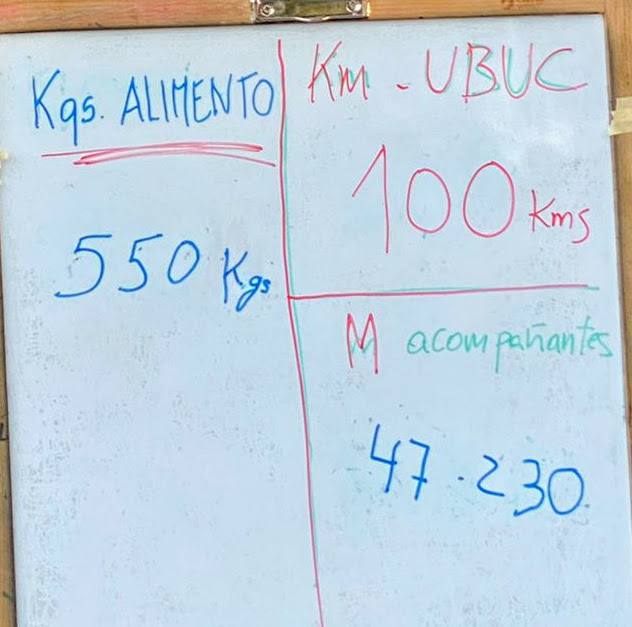 Kgs. ALIMENTO
550 Kgs
Km - UBUC
100 Kms
M acompañantes
47.230